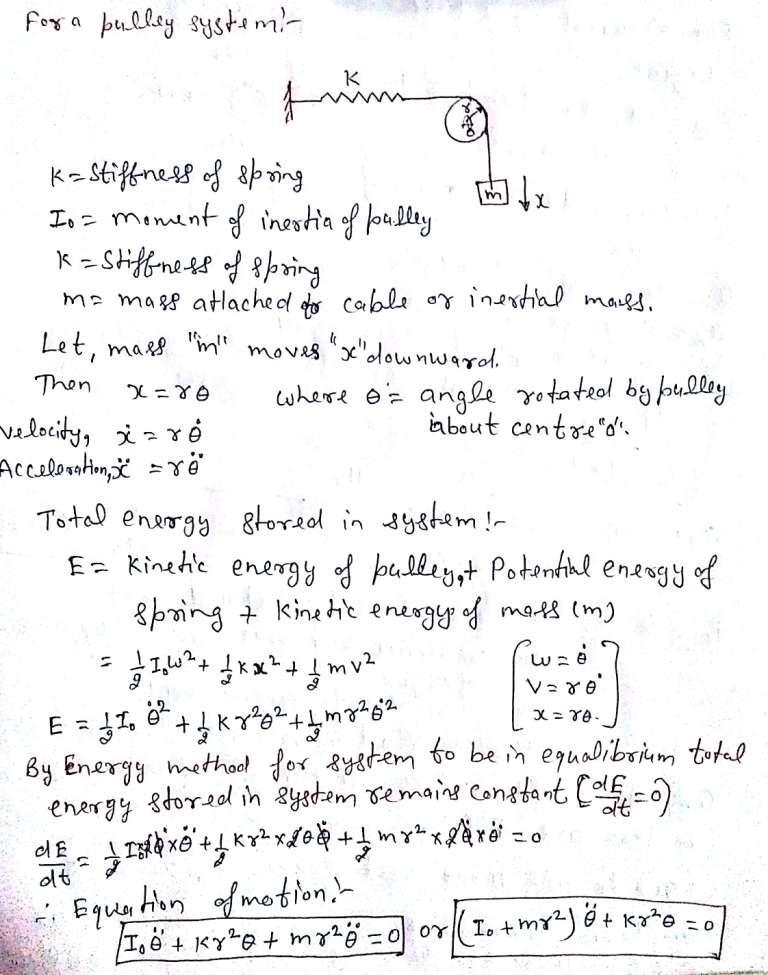 For a pulley system:-
K
r
θ
o
m ↓x
K = Stiffness of spring
I₀ = moment of inertia of pulley
K = Stiffness of spring
m = mass attached to cable or inertial mass.
Let, mass "m" moves "x" downward.
Then x = rθ where θ = angle rotated by pulley
about centre "o".
velocity, ẋ = rθ̇
Acceleration, ẍ = rθ̈
Total energy stored in system :-
E = Kinetic energy of pulley, + Potential energy of
spring + Kinetic energy of mass (m)
= 1/2 I₀ω² + 1/2 Kx² + 1/2 mv² [ω = θ̇
V = rθ̇
x = rθ.]
E = 1/2 I₀ θ̇² + 1/2 K r²θ² + 1/2 m r²θ̇²
By Energy method for system to be in equalibrium total
energy stored in system remains constant (dE/dt = 0)
dE/dt = 1/2 I₀ 2θ̇ × θ̈ + 1/2 Kr² × 2θ θ̇ + 1/2 mr² × 2θ̇ × θ̈ = 0
∴ Equation of motion:-
I₀θ̈ + Kr²θ + mr²θ̈ = 0 or (I₀ + mr²) θ̈ + Kr²θ = 0